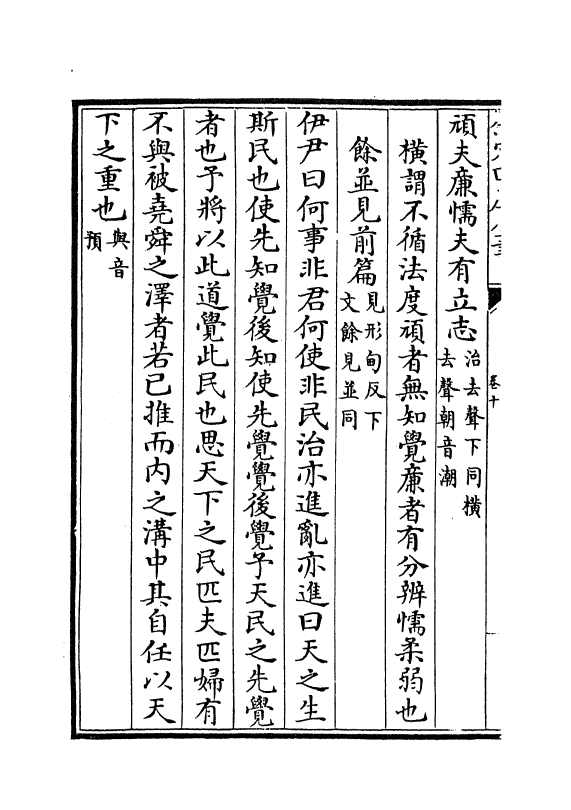 卷十
頑夫廉懦夫有立志治去聲下同橫去聲朝音潮
橫謂不循法度頑者無知覺廉者有分辨懦柔弱也
餘並見前篇見形甸反下文餘見並同
伊尹曰何事非君何使非民治亦進亂亦進曰天之生
斯民也使先知覺後知使先覺覺後覺予天民之先覺
者也予將以此道覺此民也思天下之民匹夫匹婦有
不與被堯舜之澤者若已推而內之溝中其自任以天
下之重也與音預